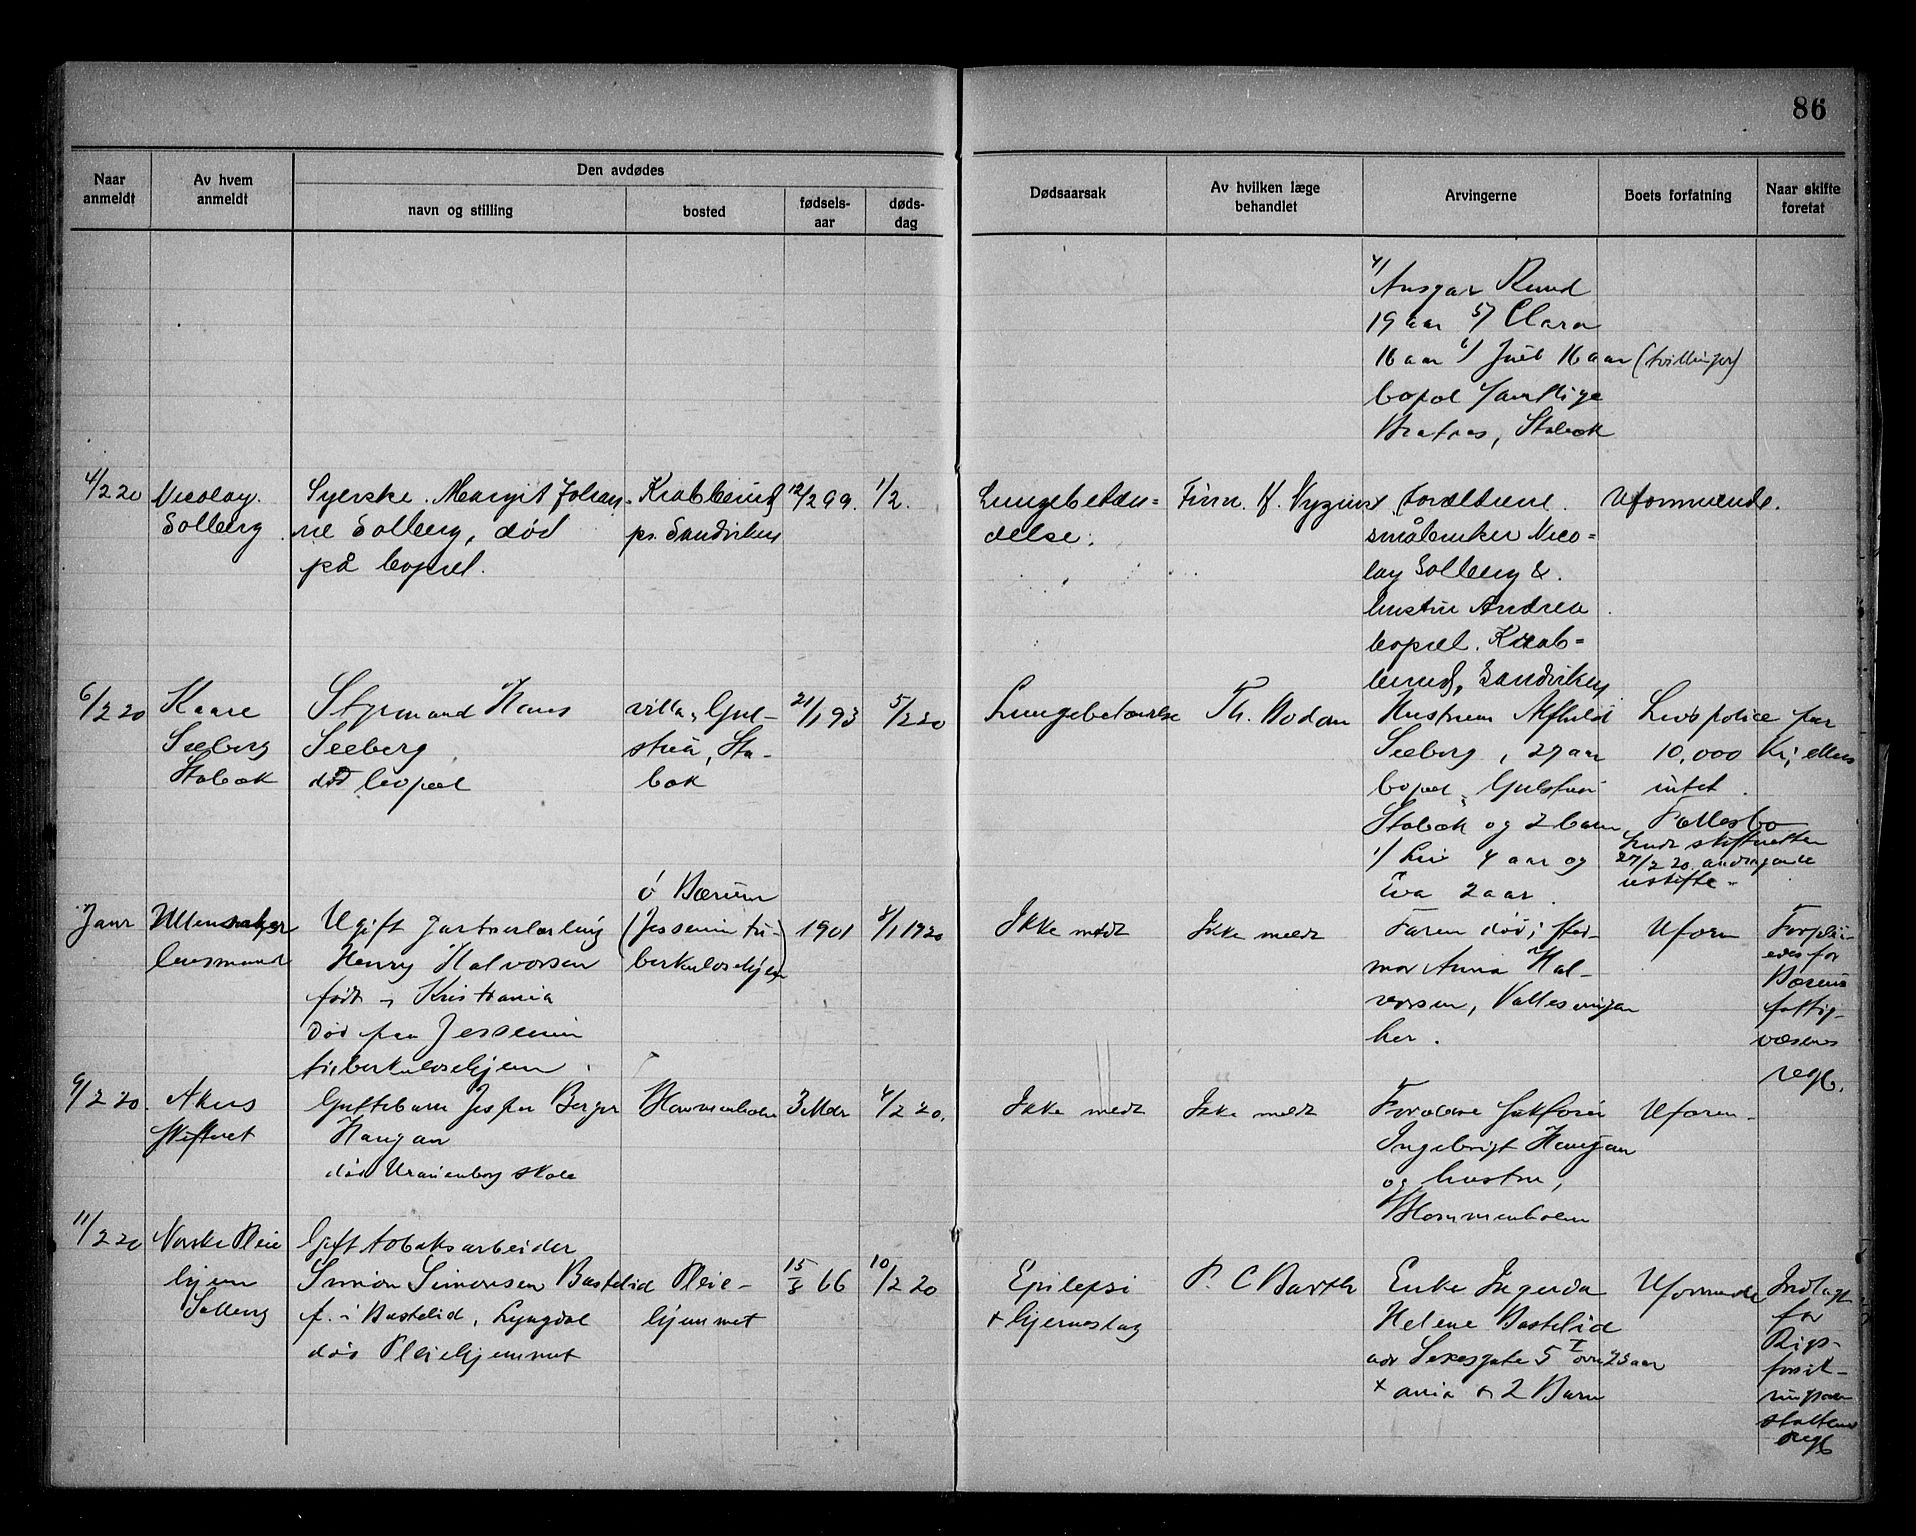 86
Naar anmeldt
Av hvem anmeldt
Den avdødes
navn og stilling
bosted
fødsels-aar
døds-dag
Dødsaarsak
Av hvilken læge behandlet
Arvingerne
Boets forfatning
Naar skifte foretat
4/ Ansgar Ruud
19 aar 5/ Clara
16 aar 6/ Juel 16 aar (tvillinger)
bopæl samtlige
Stabæk
4/2 20
Nicolay
Solberg
Syerske Margit Johan-
ne Solberg, død
på bopæl.
Krabberud
pr. Sandviken
12/2 99.
1/2.
Lungebetæn-
delse.
Finn K.
Forældrene
småbruker Nico-
lay Solberg &
hustru Andrea
bopæl. Krab-
berud, Sandviken
Uformuende.
6/2 20
Kaare
Seeberg
Stabæk
Styrmand Hans
Seeberg
død bopæl
villa Gul-
stua, Sta-
bæk
21/1 93
5/2 20
Lungebetændelse
Th.
Hustruen Alfhild
Seeberg, 27 aar
bopæl Gulstua
Stabæk og 2 barn
1/ Liv 4 aar og
Eva 2 aar
Livspolice paa
10,000 Kr, ellers
intet.
Fællesbo
Sendt skifteretten
27/2 20 andragende
uskifte
Janr
Ullensaker
lensmand
Ugift gartnerlærling
Henry Halvorsen
født i Kristiania
Død paa Jessenin
tuberkulosehjem
ø Bærum
(Jessenin tu-
berkulosehjem)
1901
8/1 1920
Ikke meldt
Ikke meldt
Faren død;
mor Anna Hal-
vorsen,
her.
Uform
Forplei-
edes for
Bærums
fattig-
væsens
regb.
9/2 20.
Akers
skifteret
Guttebarn Jesper Berger
Haugan
død Uranienborg skole
Blommenholm
3 Mdr
4/2 20.
Ikke meldt
Ikke meldt
Forældre
Ingebrigt Haugan
og hustru,
Blommenholm
Uform
11/2 20
Norske Pleie
hjem
Solberg
Gift tobaksarbeider
Simon Simonsen Bastelid
f. i Bastelid, Lyngdal
død Pleiehjemmet
Pleie-
hjemmet
15/8 66
10/2 20
Epilepsi
+ hjerneslag
P. C Barth
Enke Ingerda
Helene Bastelid
adr 5 I over 23 aar
X ania & 2 Barn
Uformuende
Indlagt
for
Rigs-
forsik-
ringsan
staltens
regb